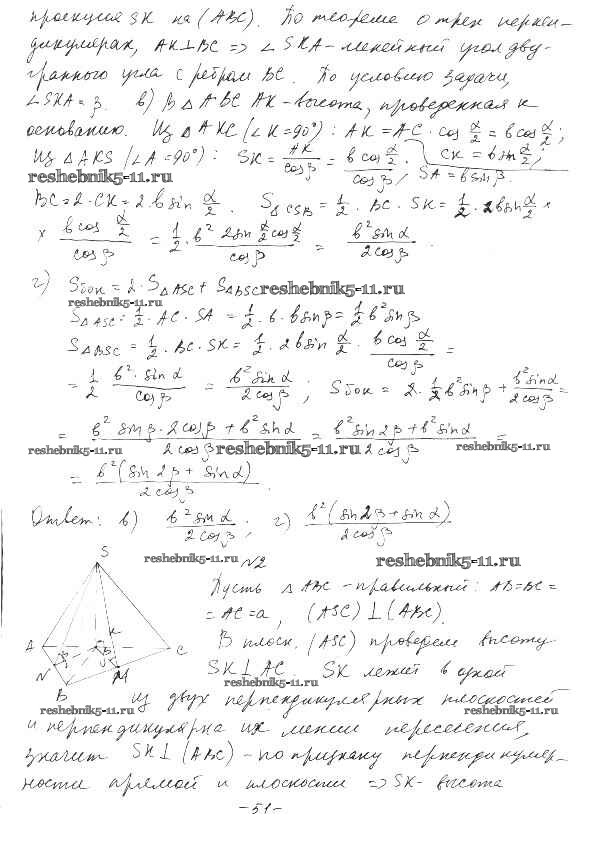 проекция SK на (ABC). По теореме о трех перпен-
дикулярах, AK⊥BC => ∠SKA - линейный угол дву-
гранного угла с ребром BC. По условию задачи,
∠SKA = β. в) В △ABC AK - высота, проведенная к
основанию. Из △AKC (∠K=90°): AK = AC · cos α/2 = b cos α/2;
Из △AKS (∠A=90°): SK = AK/cos β = b cos α/2 / cos β; CK = b sin α/2; SA = b sin β.
reshebnik5-11.ru
BC = 2·CK = 2b sin α/2. S△CSB = 1/2 · BC · SK = 1/2 · 2b sin α/2 ×
× b cos α/2 / cos β = 1/2 · b² 2 sin α/2 cos α/2 / cos β = b² sin α / 2 cos β.
г) Sбок = 2·S△ASC + S△BSC reshebnik5-11.ru
reshebnik5-11.ru
S△ASC = 1/2 · AC · SA = 1/2 · b · b sin β = 1/2 b² sin β
S△BSC = 1/2 · BC · SK = 1/2 · 2b sin α/2 · b cos α/2 / cos β =
= 1/2 b² · sin α / cos β = b² sin α / 2 cos β; Sбок = 2 · 1/2 b² sin β + b² sin α / 2 cos β =
= b² sin β · 2 cos β + b² sin α / 2 cos β = b² sin 2β + b² sin α / 2 cos β =
reshebnik5-11.ru reshebnik5-11.ru reshebnik5-11.ru
= b² (sin 2β + sin α) / 2 cos β
Ответ: в) b² sin α / 2 cos β; г) b² (sin 2β + sin α) / 2 cos β
reshebnik5-11.ru №2 reshebnik5-11.ru
S
Пусть △ABC - правильный: AB = BC =
= AC = a, (ASC) ⊥ (ABC).
A K C
В плоск. (ASC) проведем высоту
N M
SK⊥AC SK лежит в одной
reshebnik5-11.ru
B из двух перпендикулярных плоскостей
reshebnik5-11.ru reshebnik5-11.ru
и перпендикулярна их линии пересечения,
значит SK⊥(ABC) - по признаку перпендикуляр-
ности прямой и плоскости => SK - высота
-51-